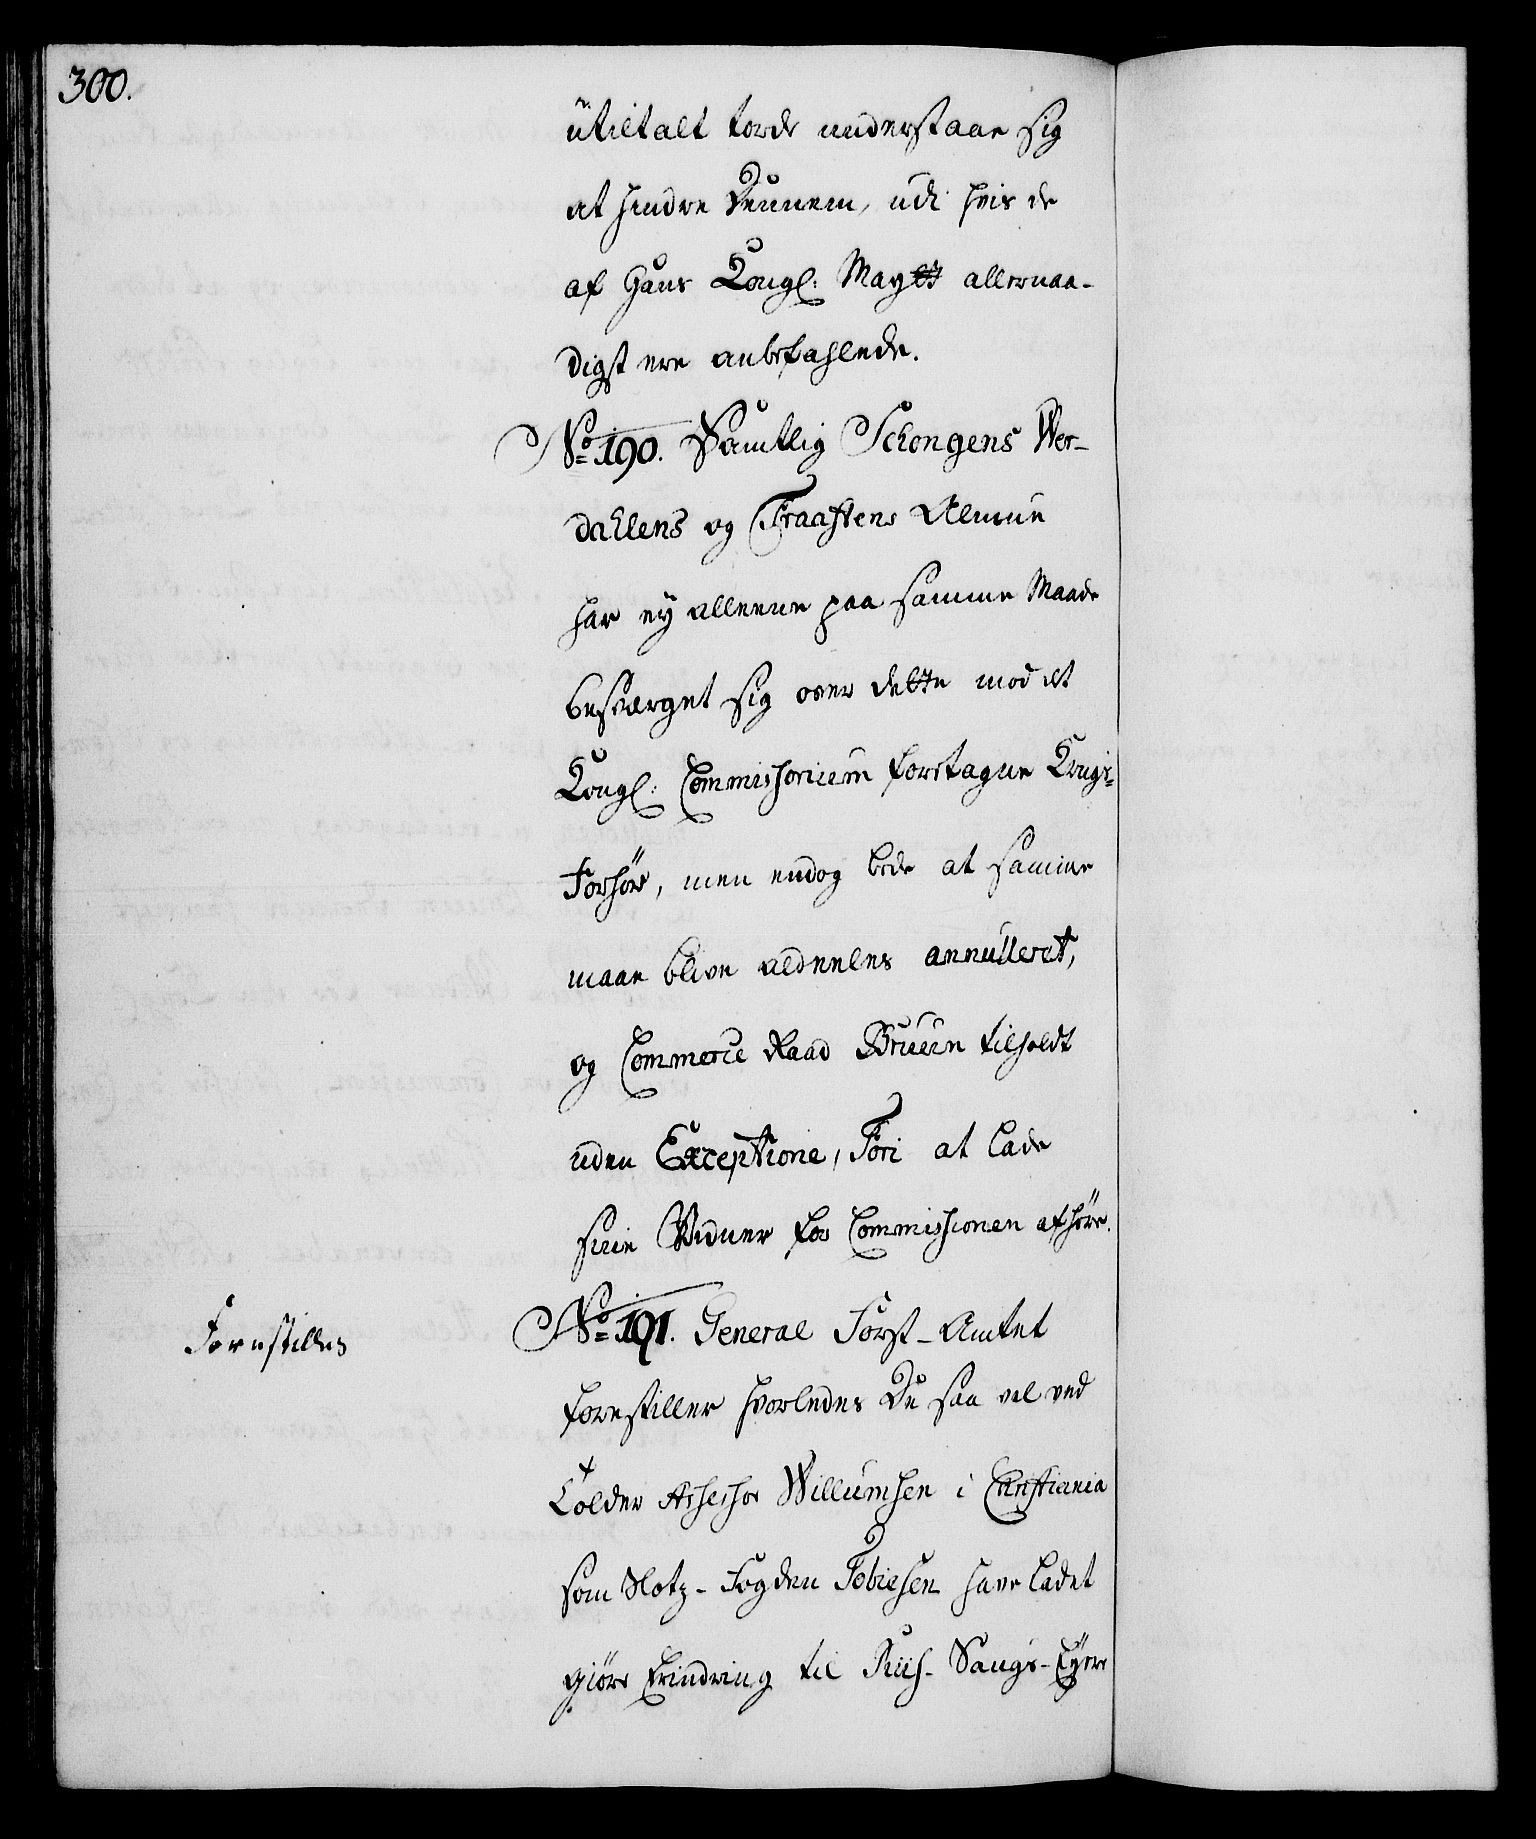 300.
utiltalt torde understaae sig
at hindre dennem, udi hvis de
af Hans Kongl: Mayet allernaa-
digst ere anbefahlede.
No 190. Samtlig Schongens Wer-
dahlens og Fraastens Almue
har ey alleene paa samme Maade
besværget sig over dette mod et
Kongl: Commissorium foretagne Krigs-
Forhör, men endog bede at samme
maae blive aldeeles annulleret,
og Commerce Raad Bruun tilholdt
uden Exceptione, Fori at lade
sine Vidner for Commissionen afhöre.
Forestilles
No 191. General Forst-Amtet
forestiller hvorledes De saa vel ved
Tolder Assessor Willumsen i Christiania
som Slotz-Fogden Tobiesen have ladet
giöre Erindring til Riis-Saugs-Eyere